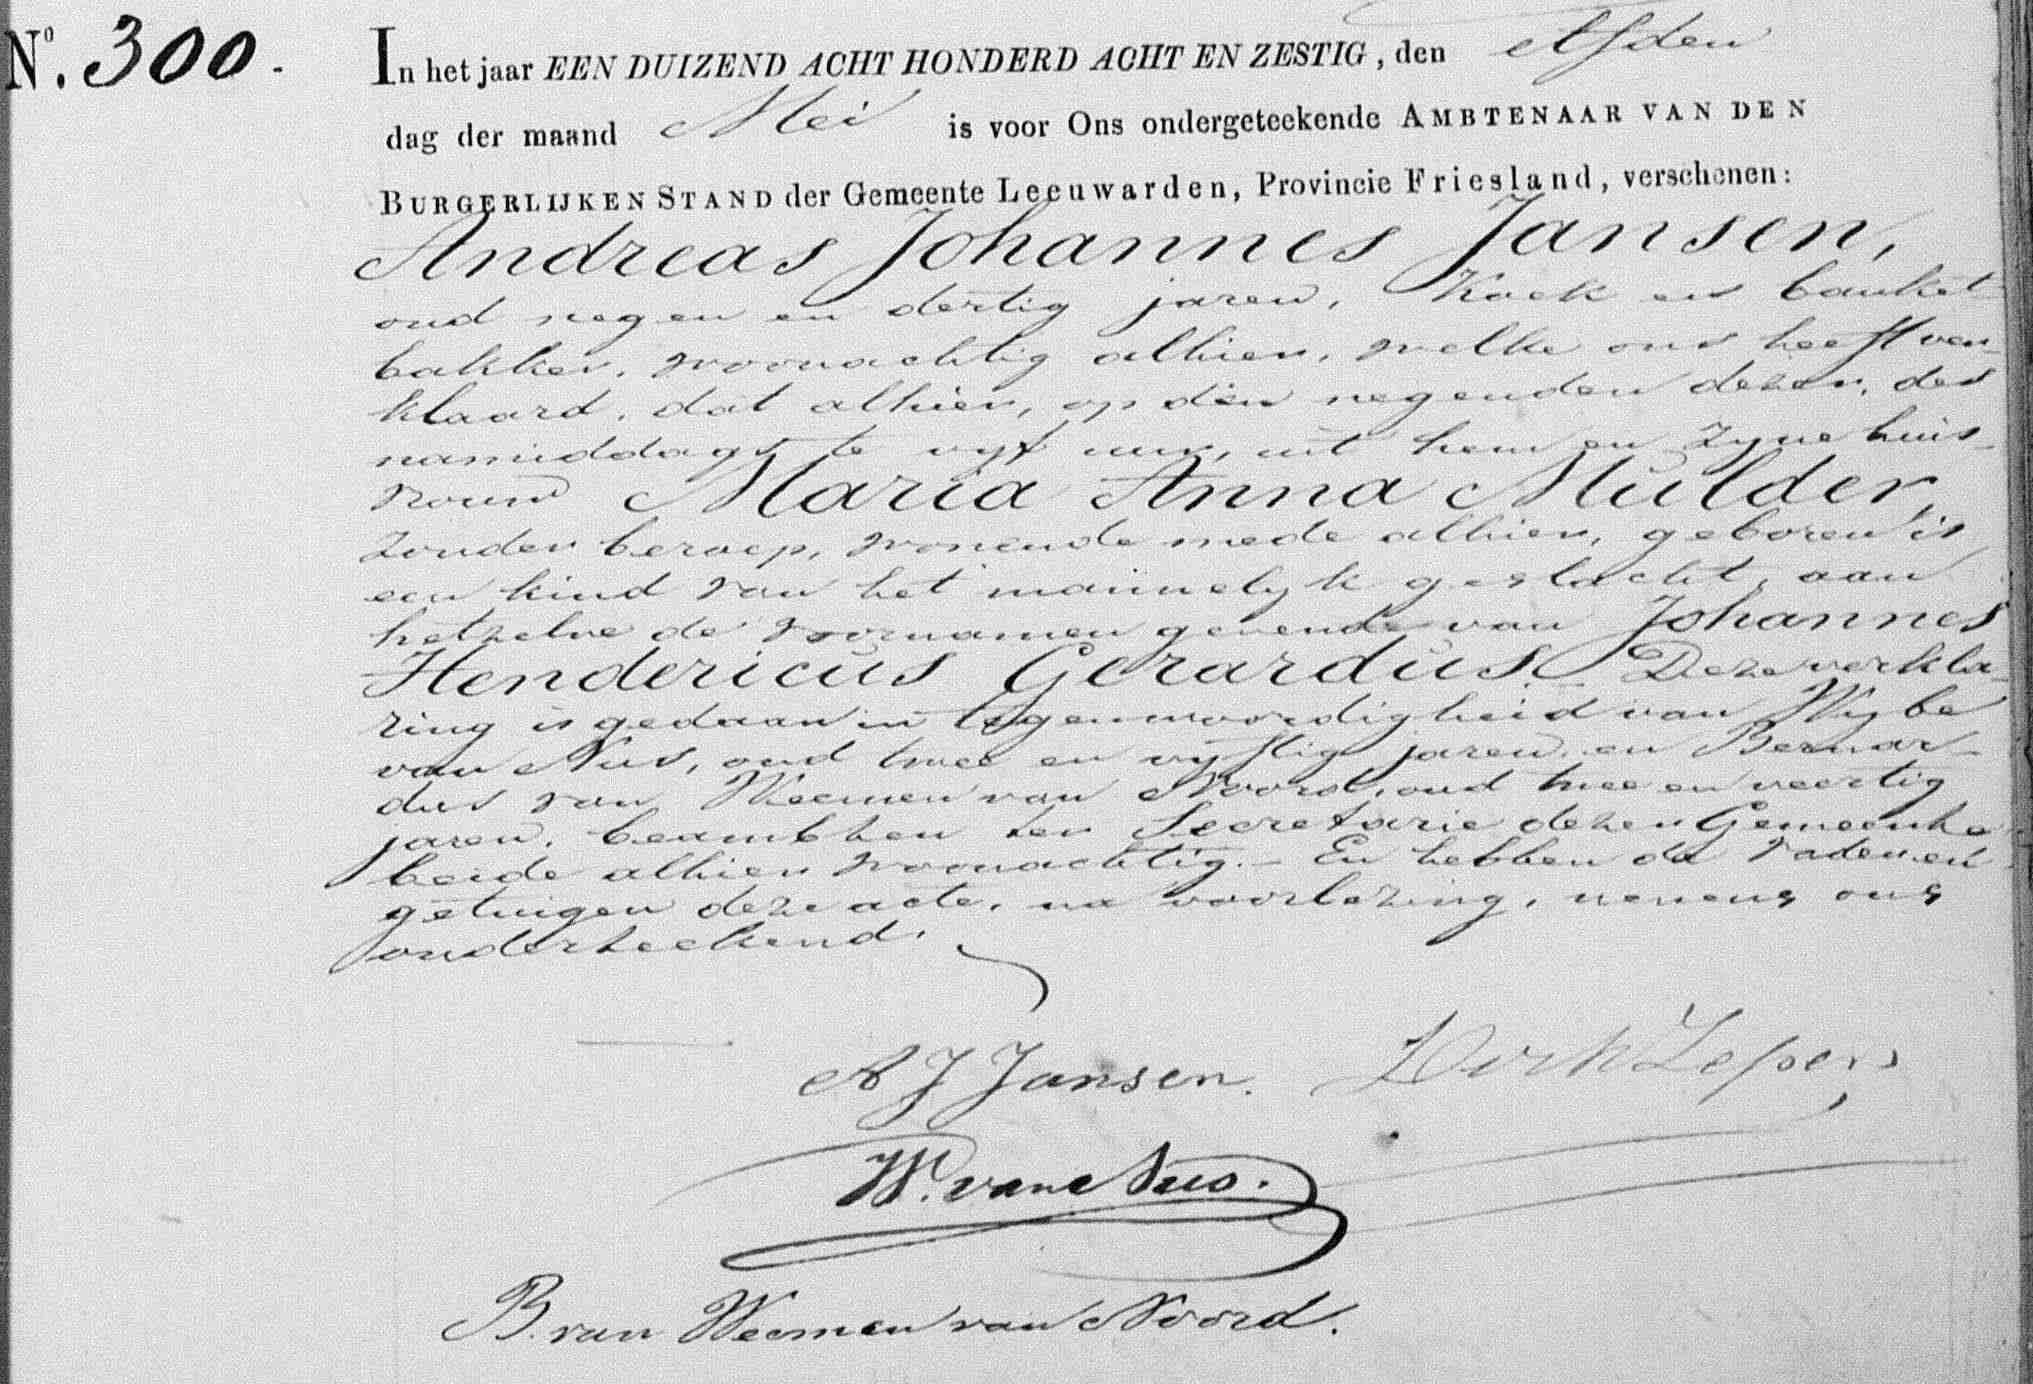 No. 300.
In het jaar EEN DUIZEND ACHT HONDERD ACHT EN ZESTIG, den elfden
dag der maand Mei is voor Ons ondergeteekende AMBTENAAR VAN DEN
BURGERLIJKEN STAND der Gemeente Leeuwarden, Provincie Friesland, verschenen:
Andreas Johannes Jansen,
oud negen en dertig jaren, Kock en banket
bakker, woonachtig alhier, welke ons heeft ver-
klaard, dat alhier, op den negenden dezer, des
namiddags te vyf uur, uit hem en zyne huis-
vrouw Maria Anna Mulder,
zonder beroep, wonende mede alhier, geboren is
een kind van het mannelyk geslacht, aan
hetzelve de voornamen gevende van Johannes
Hendericus Gerardus. Deze verkla-
ring is gedaan in tegenwoordigheid van Wybe
van Nus, oud twee en vyftig jaren, en Bernar-
dus van Weemen van Noord, oud twee en veertig
jaren, beambten ter Secretarie dezer Gemeente
beide alhier woonachtig. — En hebben de vader en
getuigen deze acte, na voorlezing, nevens ons
onderteekend.
A J Jansen. Dirk Zeper
W. van Nus.
B. van Weemen van Noord.